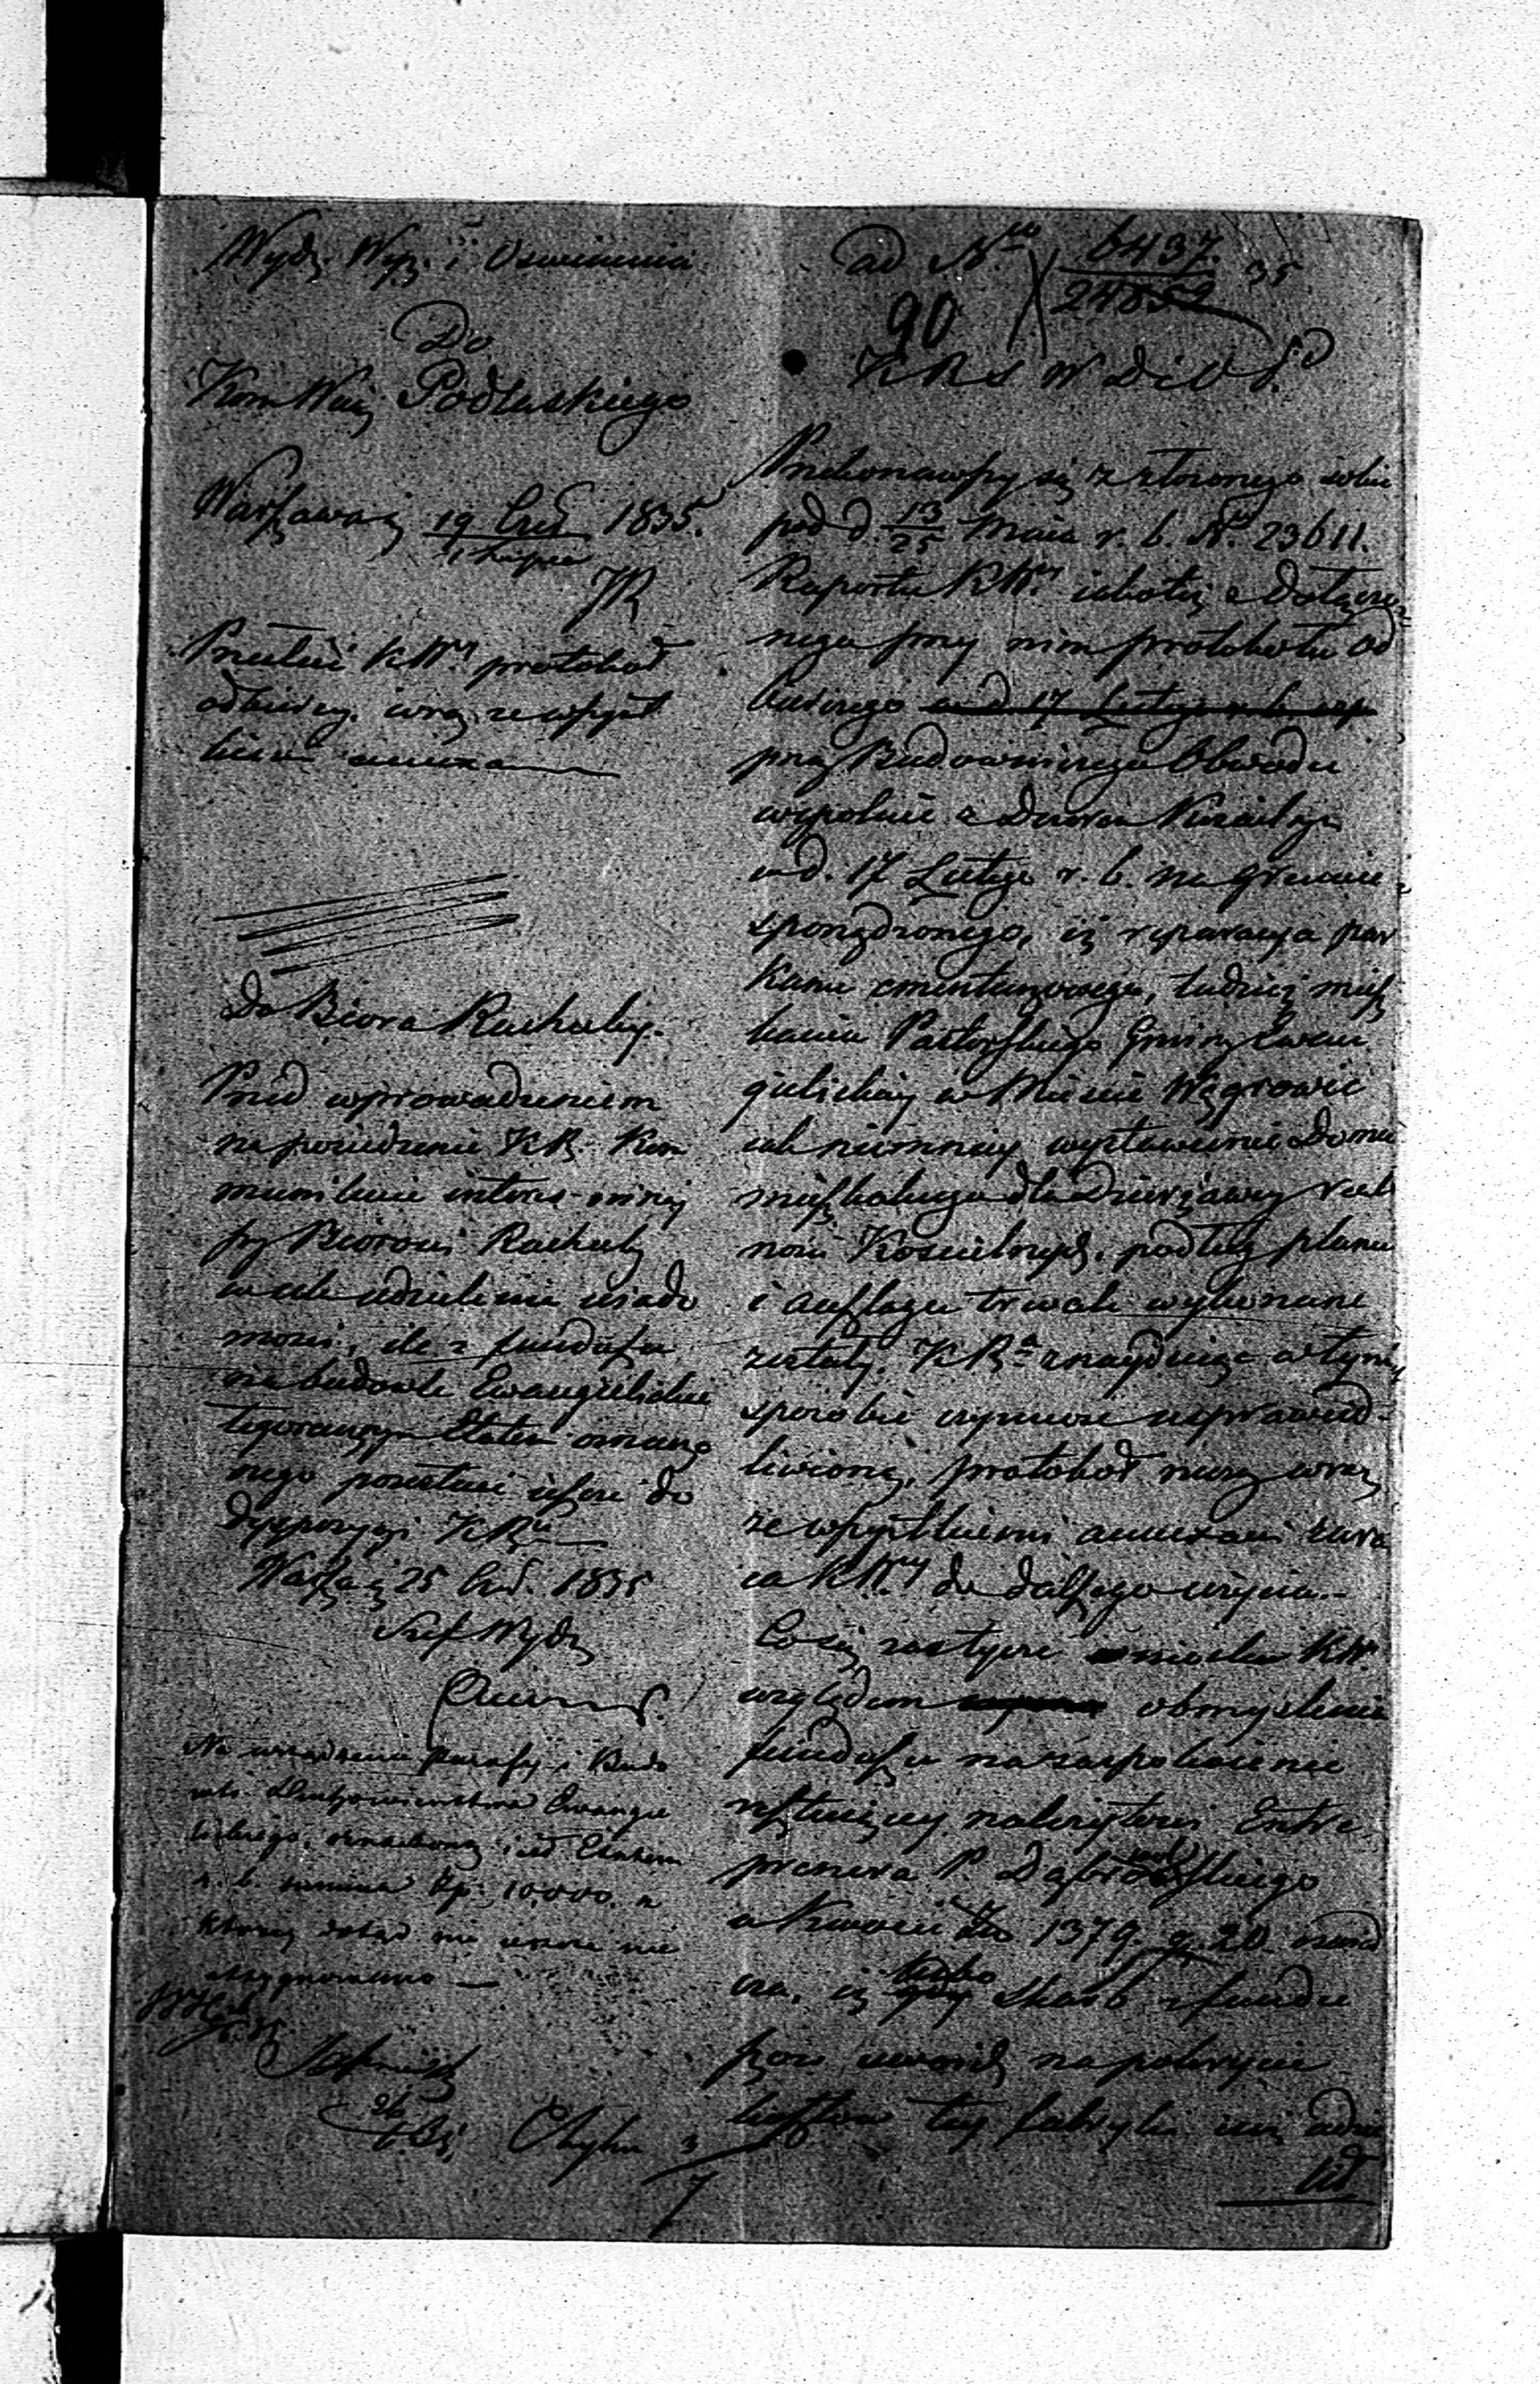 Wydz. Wyz. i Oswiecenia
Do
Kom Woj Podlaskiego
Warszawa 19 Czer 1835.
1 Lipca
Przesłać KWy protokół
odbiorczy wraz ze wszyst
kiemi annexami
Do Biora Rachuby.
Przed wprowadzeniem
na posiedzenie KR. Kom
munikuie interes niniey
szy Biorowi Rachuby
w celu udzielenia wiado
mości, ile z funduszu
na budowle Ewangielickie
tegorocznym Etatem oznaczo
nego pozostaie ieszcze do
dyspozycyi KRu
Warsz. 25 Czer. 1835
Szef Wydz
Na urządzenie Parafij i Budo
wli Duchowieństwa Ewangie
lickiego, oznaczona iest Etatem
r. b. summa Zp. 10000. z
ktorey dotąd nic ieszcze nie
assygnowano
ad No 6437. 35
24852
90
KRSWDiOP
Przekonawszy się z złożonego sobie
pod d. 13/25 Maia r. b. No 23611.
Raportu KWy iakoteż z dołączo
nego przy nim protokołu od
biorczego w d. 17 Lutego
przez Budowniczego Obwodu
wspolnie z Dozorem Kościelnym
w d. 17 Lutego r. b. na gruncie
sporządzonego, iż reparacya par
kanu cmentarzowego, tudzież miesz
kania Pastorskiego Gminy Ewan
gielickiey w Mieście Węgrowie
iak niemniey wystawienie Domu
mieszkalnego dla Dzierżawcy rol
ności Kościelnych, podług planu
i anszlagu trwale wykonane
zostały. KRa znayduiąc w tym
sposobie czynność usprawied-
liwioną, protokół rzeczony wraz
ze wszystkiemi annexami zwra
ca KWy do dalszego użycia.-
Co się zaś tycze wniosku KW
względem obmyślenia
funduszu na zaspokoienie
resztuiącey należytości Entre
prenera P. Dąbrowskiego
w kwocie Zp 1379. gr 20. oznay
cza, iż lubo Skarb z fundu
szow na pokrycie
kosztow tey fabryki nie udzie
lił